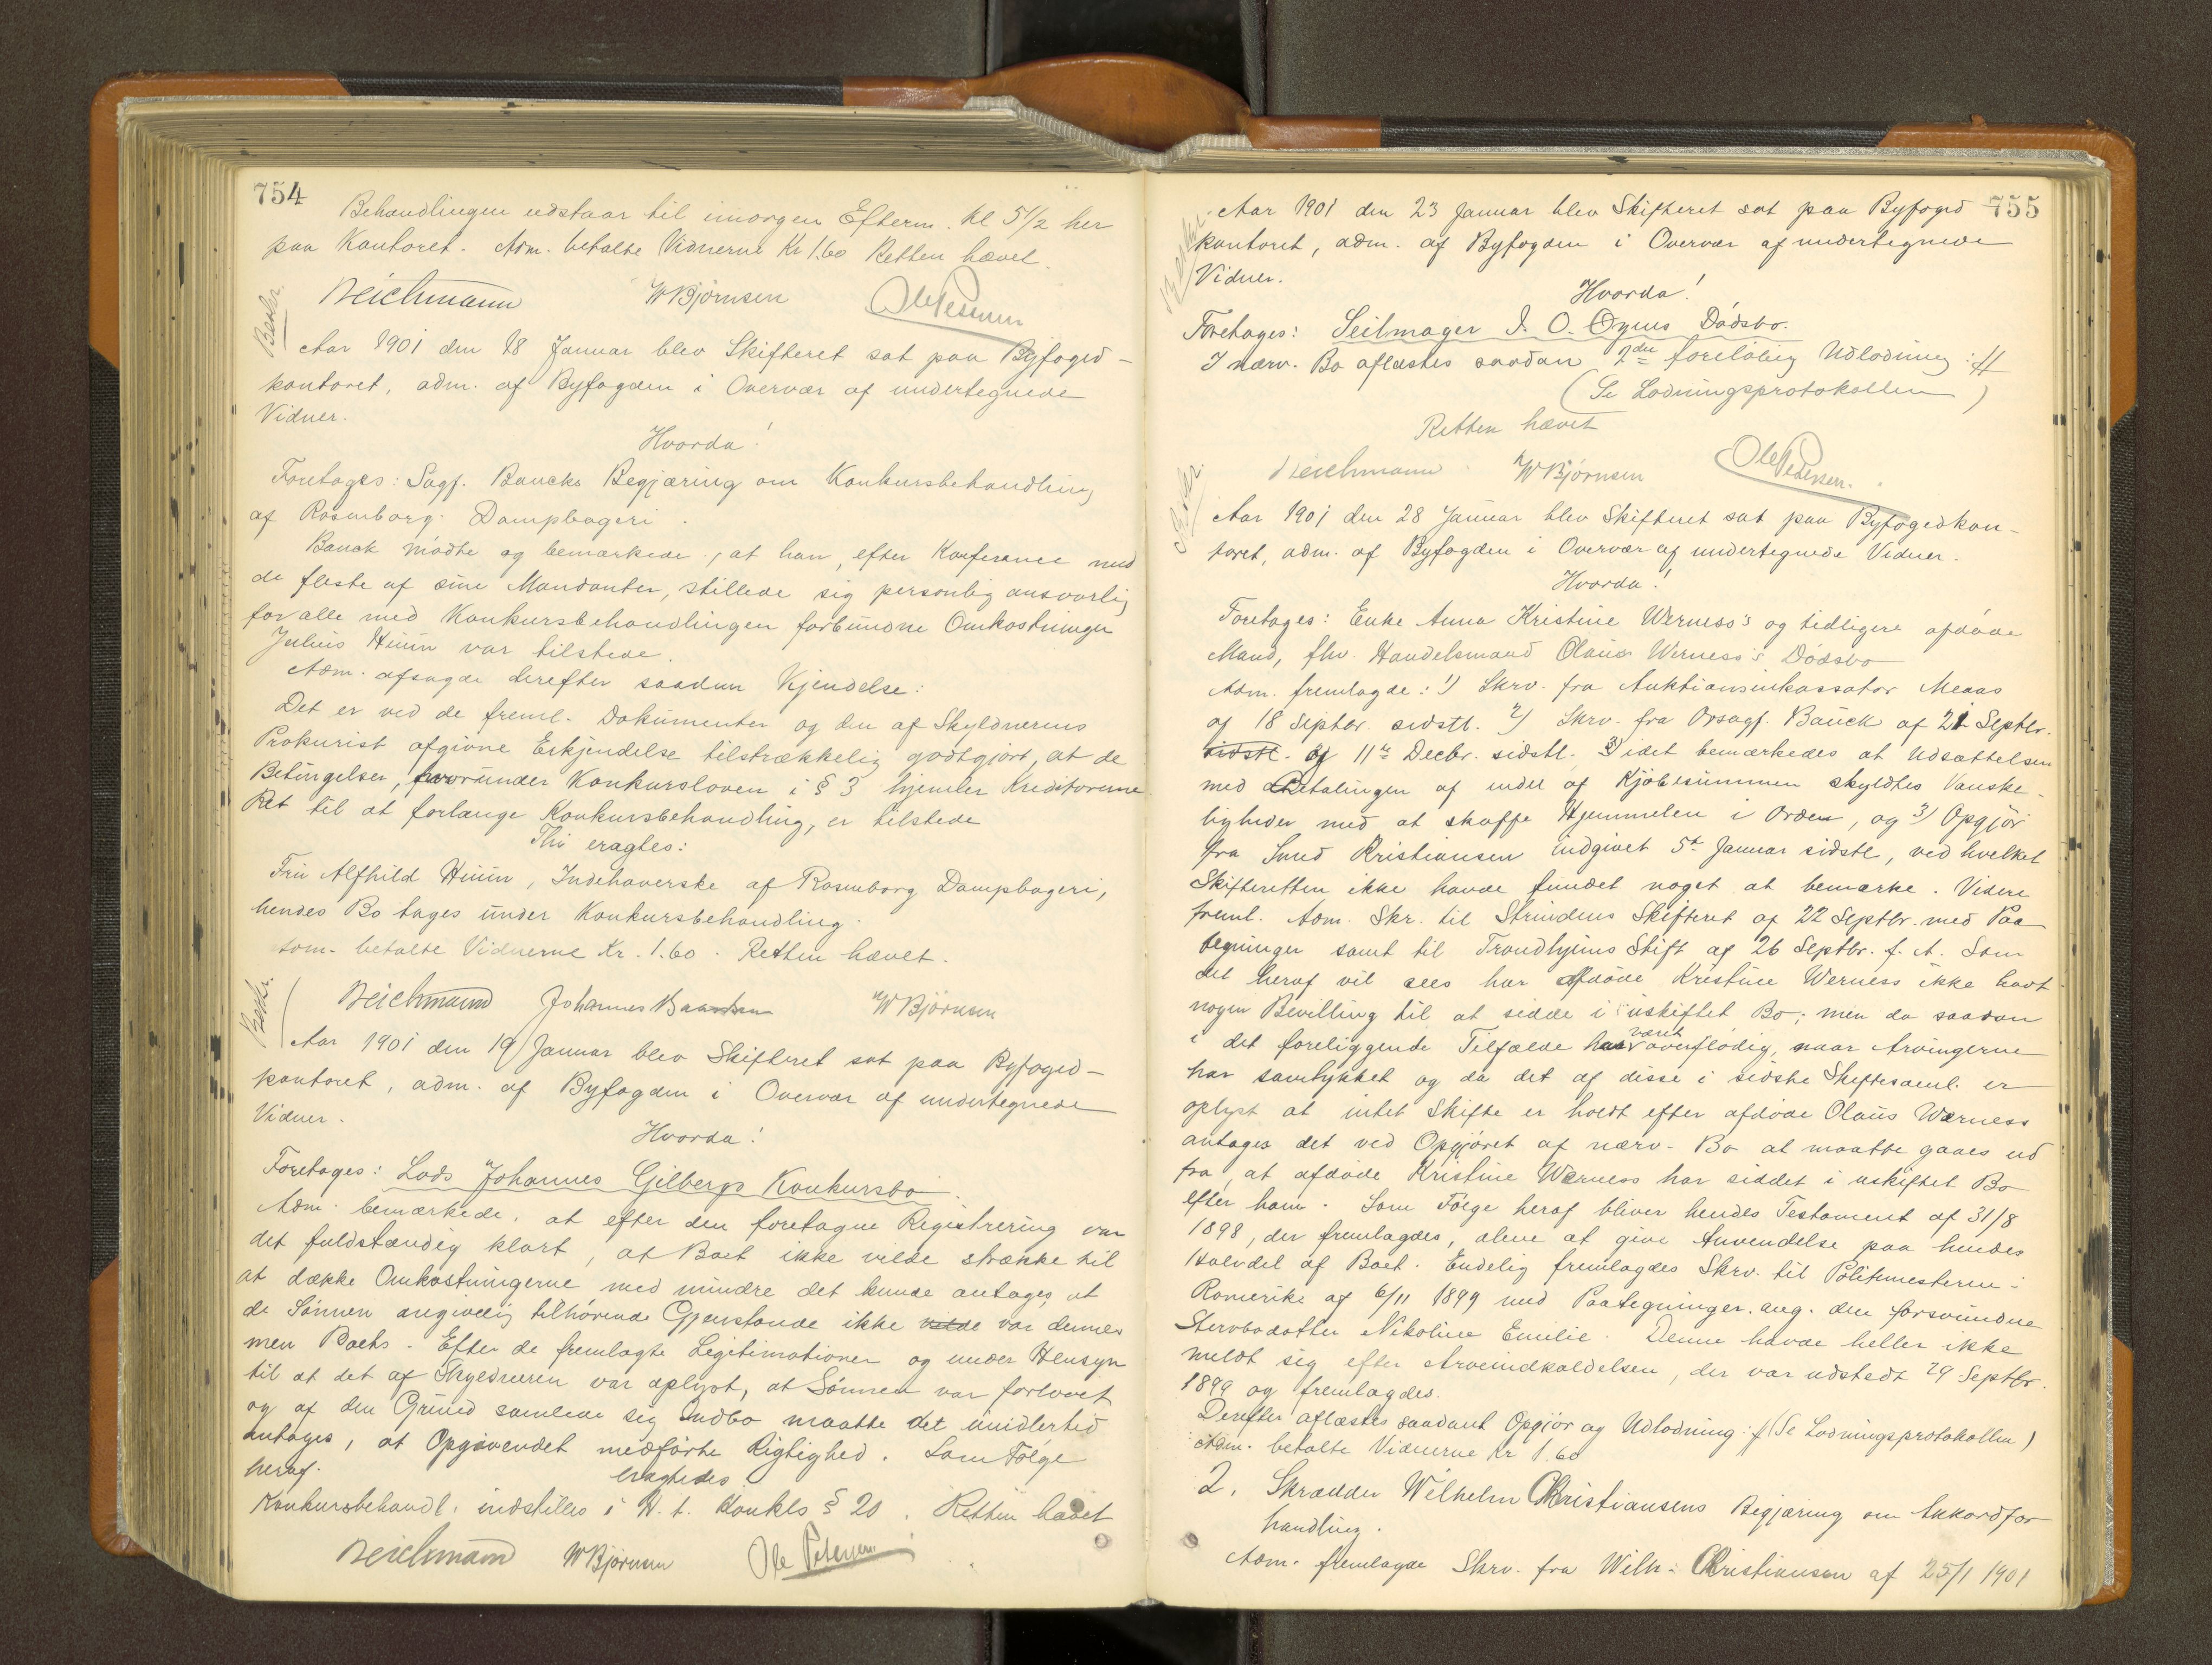 754
Behandlingen udstaar til imorgen Efterm. Kl 5 1/2 her
paa Kontoret. Adm. betalte Vidnerne Kr 1.60 Retten hævet.
Reichmann W Bjørnsen Ole Pedersen
Beskr.
Aar 1901 den 18 Januar blev Skifteret sat paa Byfoged-
kontoret, adm. af Byfogden i Overvær af undertegnede
Vidner.
Hvorda!
Foretages: Sagf. Baucks Begjæring om Konkursbehandling
af Rosenborg Dampbageri.
Bauck mødte og bemærkede, at han, efter Konferance med
de fleste af sine Mandanter, stillede sig personlig ansvarlig
for alle med Konkursbehandlingen forbundne Omkostninger
Julius Huun var tilstede.
Adm. afsagde derefter saadan Kjendelse:
Det er ved de freml. Dokumenter og den af Skyldnerens
Prokurist afgivne Erkjendelse tilstrækkelig godtgjort, at de
Betingelser, hvorunder Konkursloven i § 3 hjemler Kreditorerne
Ret til at forlange Konkursbehandling, er tilstede
Thi eragtes:
Fru Alfhild Huun, Indehaverske af Rosenborg Dampbageri,
hendes Bo tages under Konkursbehandling.
Adm. betalte Vidnerne Kr. 1.60. Retten hævet.
Beskr.
Reichmann Johannes W Bjørnsen
Aar 1901 den 19 Januar blev Skifteret sat paa Byfoged-
kontoret, adm. af Byfogden i Overvær af undertegnede
Vidner.
Hvorda!
Foretages: Lods Johannes Gilbergs Konkursbo.
Adm. bemærkede, at efter den foretagne Registrering var
det fuldstændig klart, at Boet ikke vilde strække til
at dække Omkostningerne med mindre det kunde antages, at
de Sønnen angivelig tilhørende Gjenstande ikke var dennes
men Boets. Efter de fremlagte Legitimationer og under Hensyn
til at det af Skyldneren var oplyst, at Sønnen var forlovet
og af den Grund samlede sig Indbo maatte det imidlertid
antages, at Opgivendet medførte Rigtighed. Som Følge
heraf
eragtedes
Konkursbehandl. indstilles i H. t. Konkls § 20. Retten hævet
Reichmann W Bjørnsen Ole Petersen
755
Aar 1901 den 23 Januar blev Skifteret sat paa Byfoged
kontoret, adm. af Byfogden i Overvær af undertegnede
Vidner.
Hvorda!
Foretages: Seilmager I. O. Øyens Dødsbo.
I nærv. Bo aflæstes saadan 2den foreløbig Udlodning: #
(Se Lodningsprotokollen)
Retten hævet
Reichmann W Bjørnsen Ole Pedersen.
Beskr.
Aar 1901 den 28 Januar blev Skifteret sat paa Byfogedkon-
toret, adm. af Byfogden i Overvær af undertegnede Vidner.
Hvorda!
Foretages: Enke Anna Kristine Werness's og tidligere afdøde
Mand, fhv. Handelsmand Olaus Werness's Dødsbo
Adm. fremlagde: 1) Skrv. fra Auktionsinkassator Meaas
af 18 Septbr. sidstl. 2) Skrv. fra Orsagf. Bauck af 21 Septbr.
sidstl. og 11te Decbr. sidstl. idet bemærkedes at Udsættelsen
med Betalingen af endel af Kjøbesummen skyldtes Vanske-
ligheder med at skaffe Hjemmelen i Orden, og 3) Opgjør
fra Smed Kristiansen indgivet 5te Januar sidstl, ved hvilket
Skifteretten ikke havde fundet noget at bemærke. Videre
freml. Adm. Skr. til Strindens Skifteret af 22 Septbr. med Paa
tegninger samt til Trondhjems Stift af 26 Septbr. f. A. Som
det heraf vil sees har afdøde Kristine Werness ikke havt
nogen Bevilling til at sidde i uskiftet Bo; men da saadan
i det foreliggende Tilfælde har været overflødig, naar Arvingerne
har samtykket og da det af disse i sidste Skiftesaml. er
oplyst at intet Skifte er holdt efter afdøde Olaus Werness
antages det ved Opgjøret af nærv. Bo at maatte gaaes ud
fra, at afdøde Kristine Werness har siddet i uskiftet Bo
efter ham. Som Følge heraf bliver hendes Testament af 31/8
1898, der fremlagdes, alene at give Anvendelse paa hendes
Halvdel af Boet. Endelig fremlagdes Skrv. til Politimesteren i
Romerike af 6/11 1899 med Paategninger. ang. den forsvundne
Stervbodatter Nikoline Emilie. Denne havde heller ikke
meldt sig efter Arveindkaldelsen, der var udstedt 29 Septbr.
1899 og fremlagdes.
Derefter aflæstes saadant Opgjør og Udlodning: # (Se Lodningsprotokollen)
Adm. betalte Vidnerne Kr 1.60
2. Skrædder Wilhelm Christiansens Begjæring om Akkordfor
handling.
Adm. fremlagde Skrv. fra Wilh. Christiansen af 25/1 1901